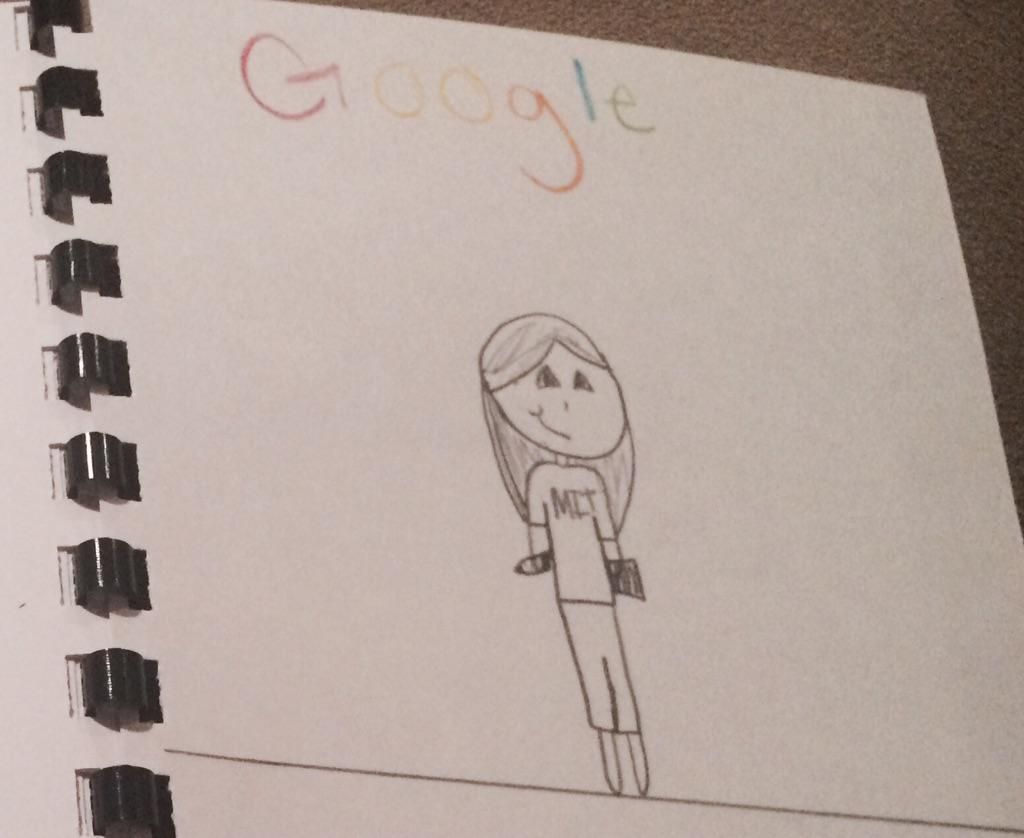 Google
MIT